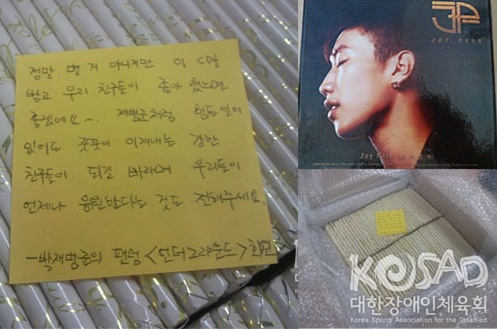 정말 별 거 아니지만 이 CD를
받고 우리 친구들이 좋아 했으면
좋겠네요~. 재범군처럼 힘든일이
있어도 꿋꿋이 이겨내는 강한
친구들이 되길 바라며 우리들이
언제나 응원한다는 것도 전해주세요.
-박재범군의 팬덤 <언더그라운드>
JP
JAY PARK
KOSAD
대한장애인체육회
Korea Sports Association for the Disabled